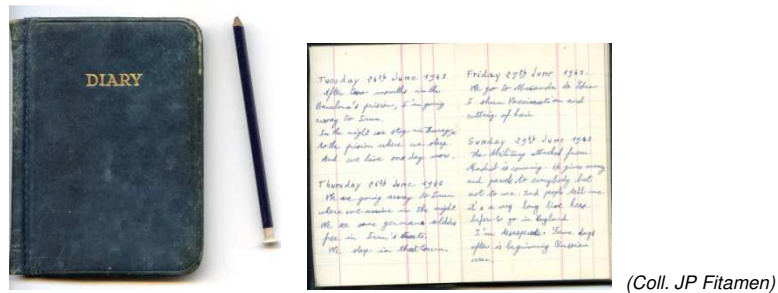 DIARY
Tuesday 24th June 1941
After two months in the
Barcelona's prison, I'm going
away to Irun.
In the night we stop in
to the prison where we sleep
And we live one day more.
Thursday 26th June 1941
We are going away to Irun
where we arrive in the night
We see some germans soldiers
free in Irun's streets.
We sleep in that town.
Friday 27th June 1941.
We go to Miranda de Ebro
I show Vaccination and
cutting of hair
Sunday 29th June 1941
The Military attached from
Madrid is coming. He gives money
and parcels to everybody but
not to me. And people tell me
it's a very long live here
before to go in England
I'm desesperate. Some days
after is beginning Russian
war.
(Coll. JP Fitamen)